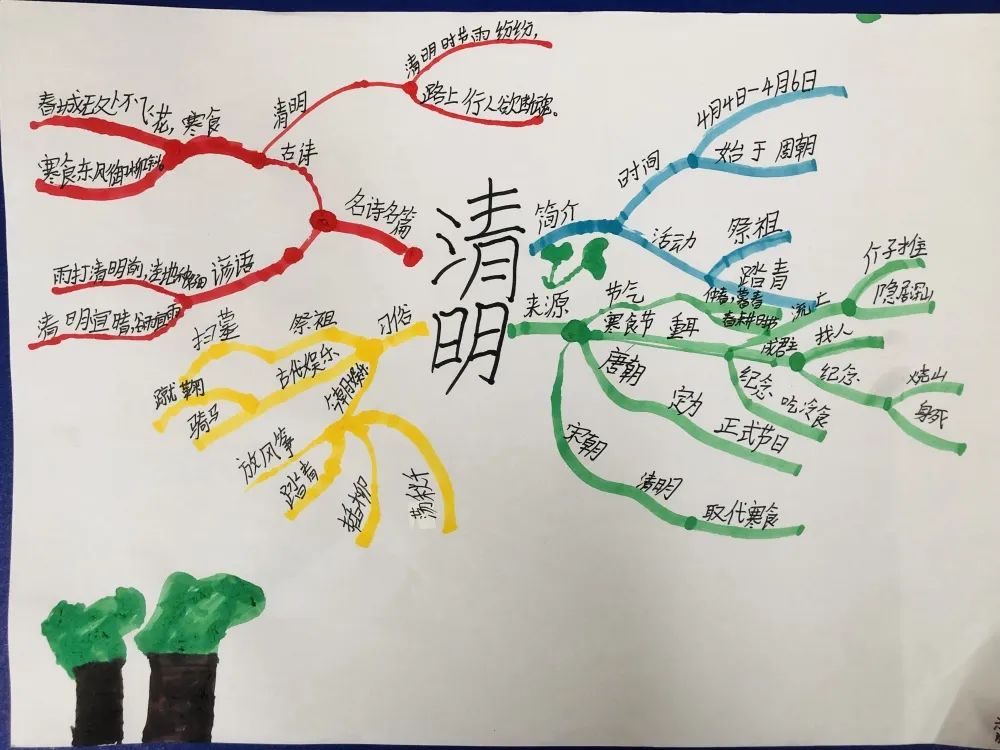 清明
简介
时间
4月4日-4月6日
始于周朝
活动
祭祖
踏青
来源
节气
寒食节
重耳
流亡
介子推
隐居深山
成君主
找人
纪念
烧山
身死
纪念 吃冷食
唐朝
定为
正式节日
宋朝
清明
取代寒食
习俗
祭祖
扫墓
古代娱乐
蹴鞠
骑马
放风筝
踏青
插柳
荡秋千
名诗名篇
古诗
清明
清明时节雨纷纷，
路上行人欲断魂。
寒食
春城无处不飞花，
寒食东风御柳斜。
谚语
雨打清明前，洼地种田
清明宜晴，谷雨宜雨